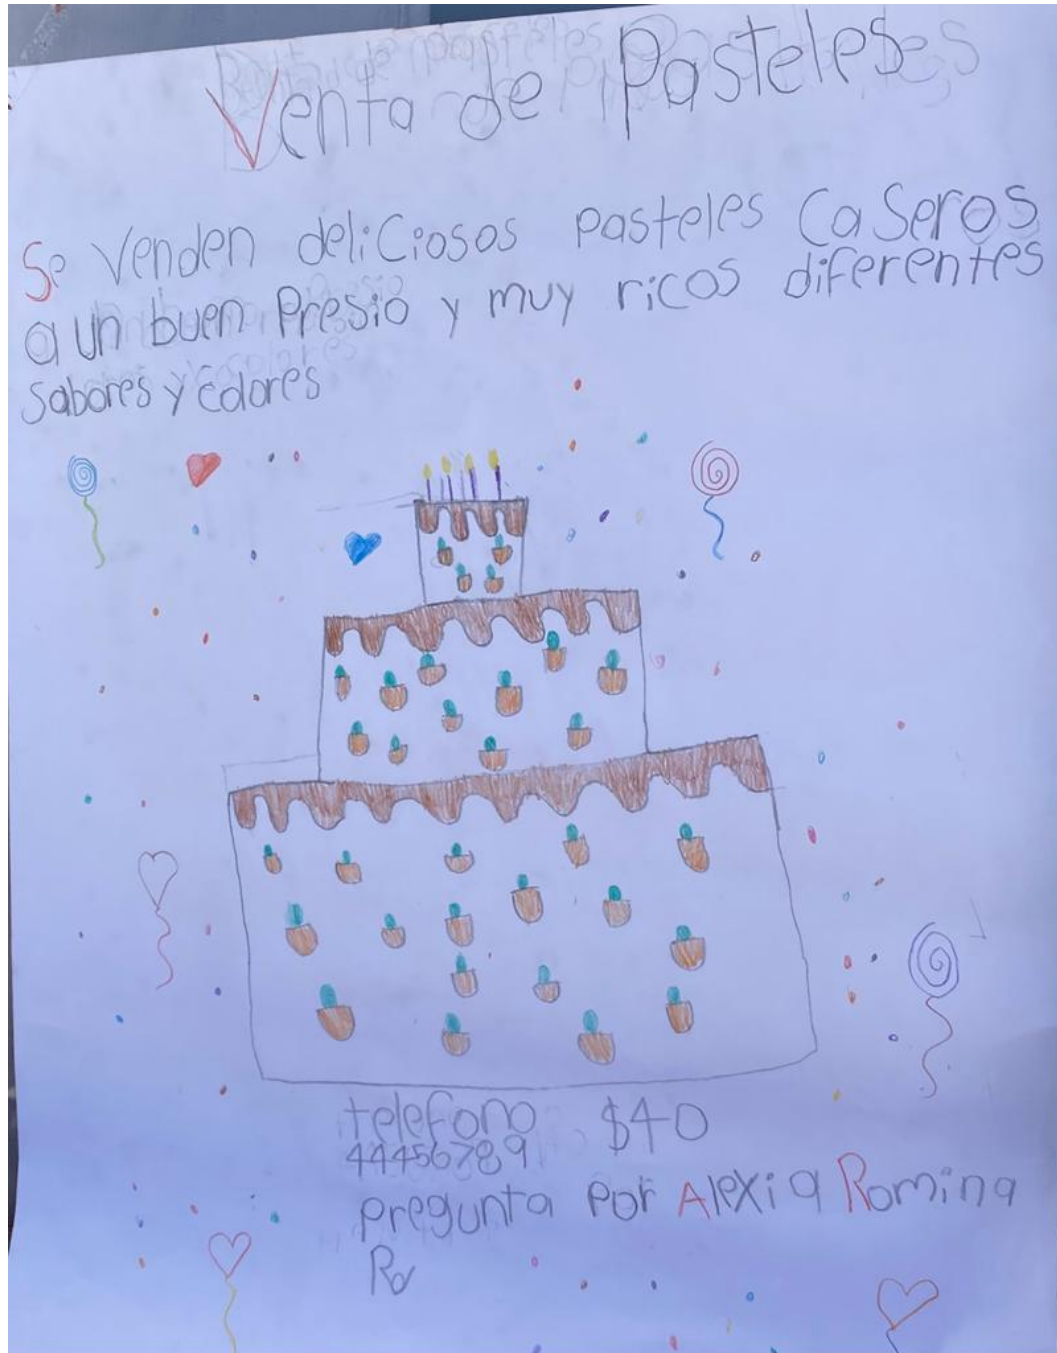 Venta de Pasteles
Se Venden deliCiosos pasteles CaSeros
a un buen Presio y muy ricos diferentes
Sabores y Colores
telefono $40
44456789
pregunta por Alexia Romina